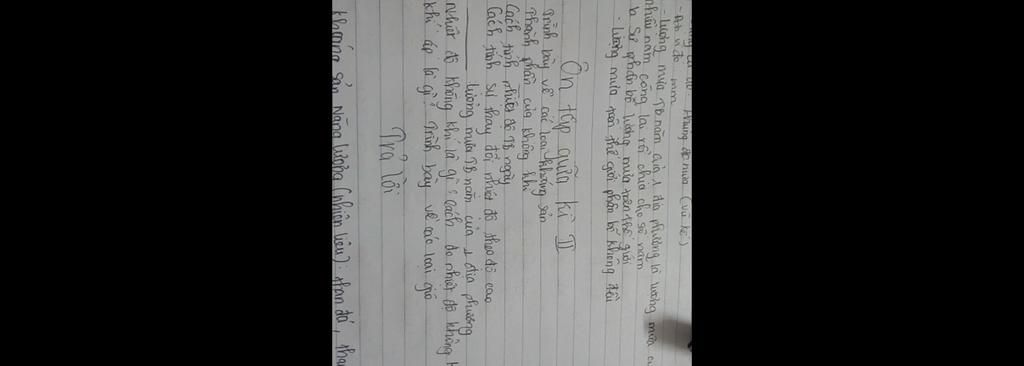 dụng cụ đo: thùng đo mưa (vũ kế)
- Đơn vị đo mm
- Lượng mưa TB năm của 1 địa phương là lượng mưa
nhiều năm cộng lại rồi chia cho số năm
b Sự phân bố lượng mưa trên thế giới
- Lượng mưa trên thế giới phân bố không đều
Ôn tập giữa kì II
Trình bày về các loại khoáng sản
Thành phần của không khí
Cách tính nhiệt độ TB ngày
Cách tính sự thay đổi nhiệt độ theo độ cao
lượng mưa TB năm của 1 địa phương
Nhiệt độ không khí là gì? Cách đo nhiệt độ không
khí áp là gì? Trình bày về các loại gió
Trả lời
khoáng sản Năng lượng (nhiên liệu): than đá, than